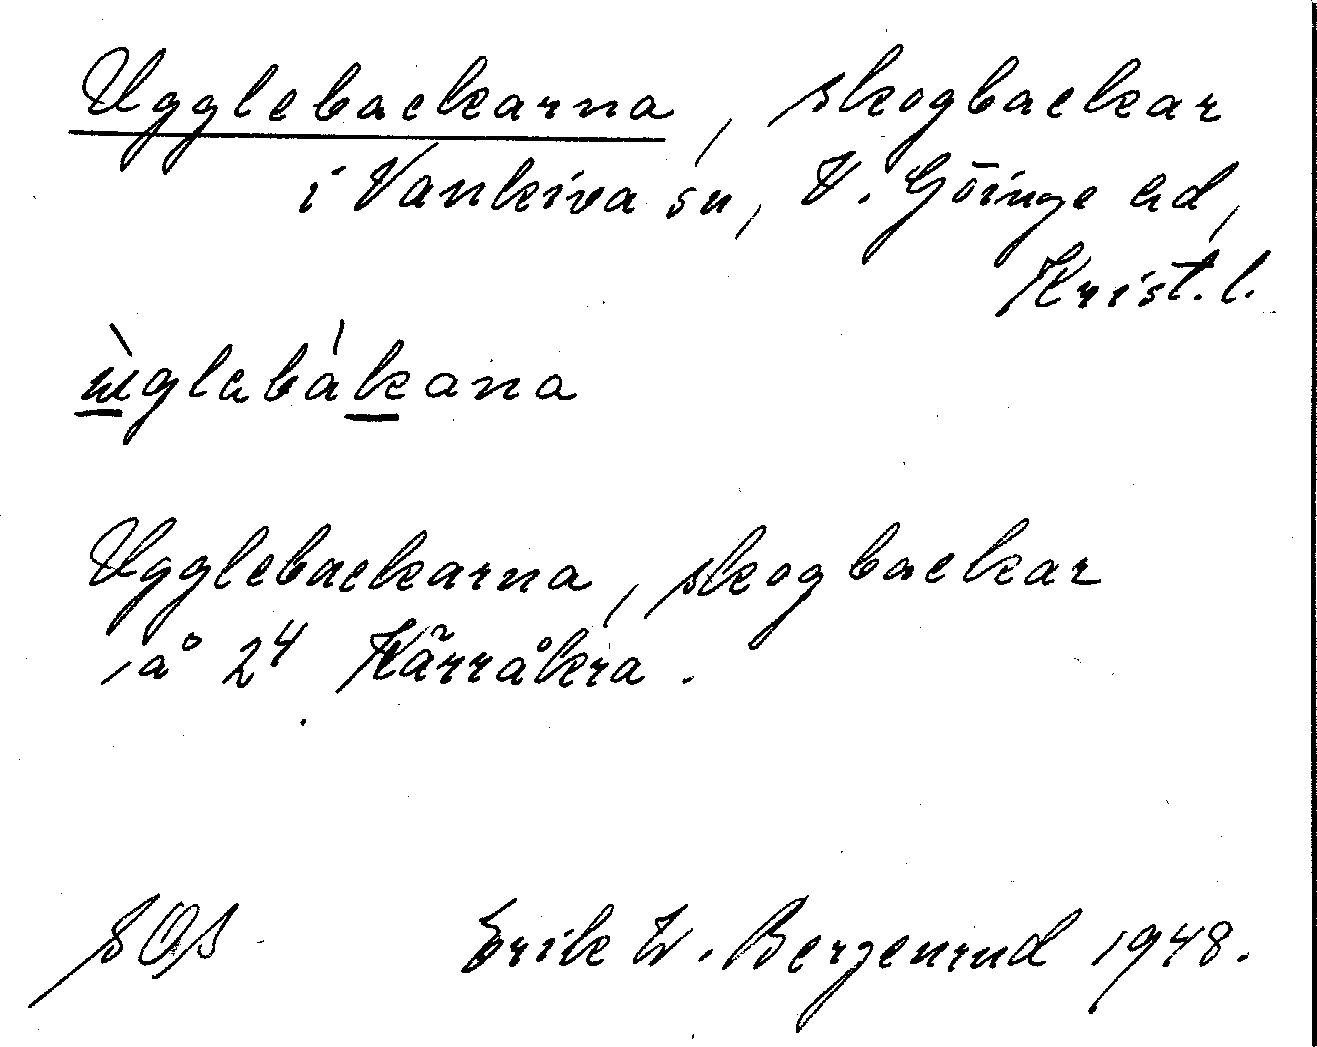 Ugglebackarna, skogbackar
i Vankiva sn, V. Göinge hd,
Krist. l.
ùglebákana
Ugglebackarna, skogbackar
på 2⁴ Kärråkra.
SOS Erik W. Bergenrud 1948.